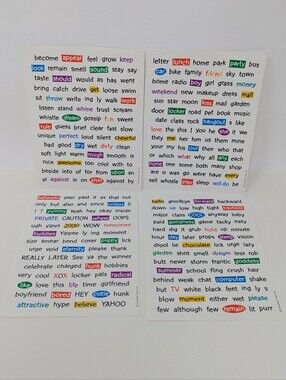 become appear feel grow keep
look remain smell sound stay say
taste should would as has went
bring catch drive get loose swim
sit throw write ing ly walk work
listen stand whine trust scream
whistle dream gossip fun sweet
rule guess brief clear fast slow
unique perfect loud silent cheerful
bad good dry wet dirty clean
soft light warm rough smooth is
nice awesome too cool with to
beside into of for from upon an
at against in on after against by
letter lunch home park party bus
car bike family friend sky town
home radio boy girl games money
weekend new makeup dress mall
sun star moon kiss mall garden
door locker pad book music
date class rock hangout a like
love the this I you he she it we
they me him us them your
your my his our their who that
or which what why all any each
none me some both many shop
are is was go were have every
sell whistle play sleep will do be
over past if as than not
only but also and since
! ? yummy Yeah hey okay inside
PRIVATE CAUTION when OOPS
ugh yipes 2000 WOW memories
Yippee ly ing moment
size smear bend over puppy lick
urge void eternity please thank
REALLY LATER See ya the winner
celebrate charged hung hobbies
very cool XOX locker pals radical
like love this life time girlfriend
boyfriend bored HEY cyber hunk
attractive hype believe YAHOO
hello goodbye forwards backward
up down low high tight
major class anyway baby
goodness game tacky hairy
hard dig it trouble wild 10 minute
hour day star props sleep
drool lie chocolate lick urge lazy
garden shot smell desire less rob
butt never storm frantic goddess
summer school fling crush hair
behind weak chat computer shake
but TV white black feet ing ly s
blow moment either wet please
few although few remain lit purr